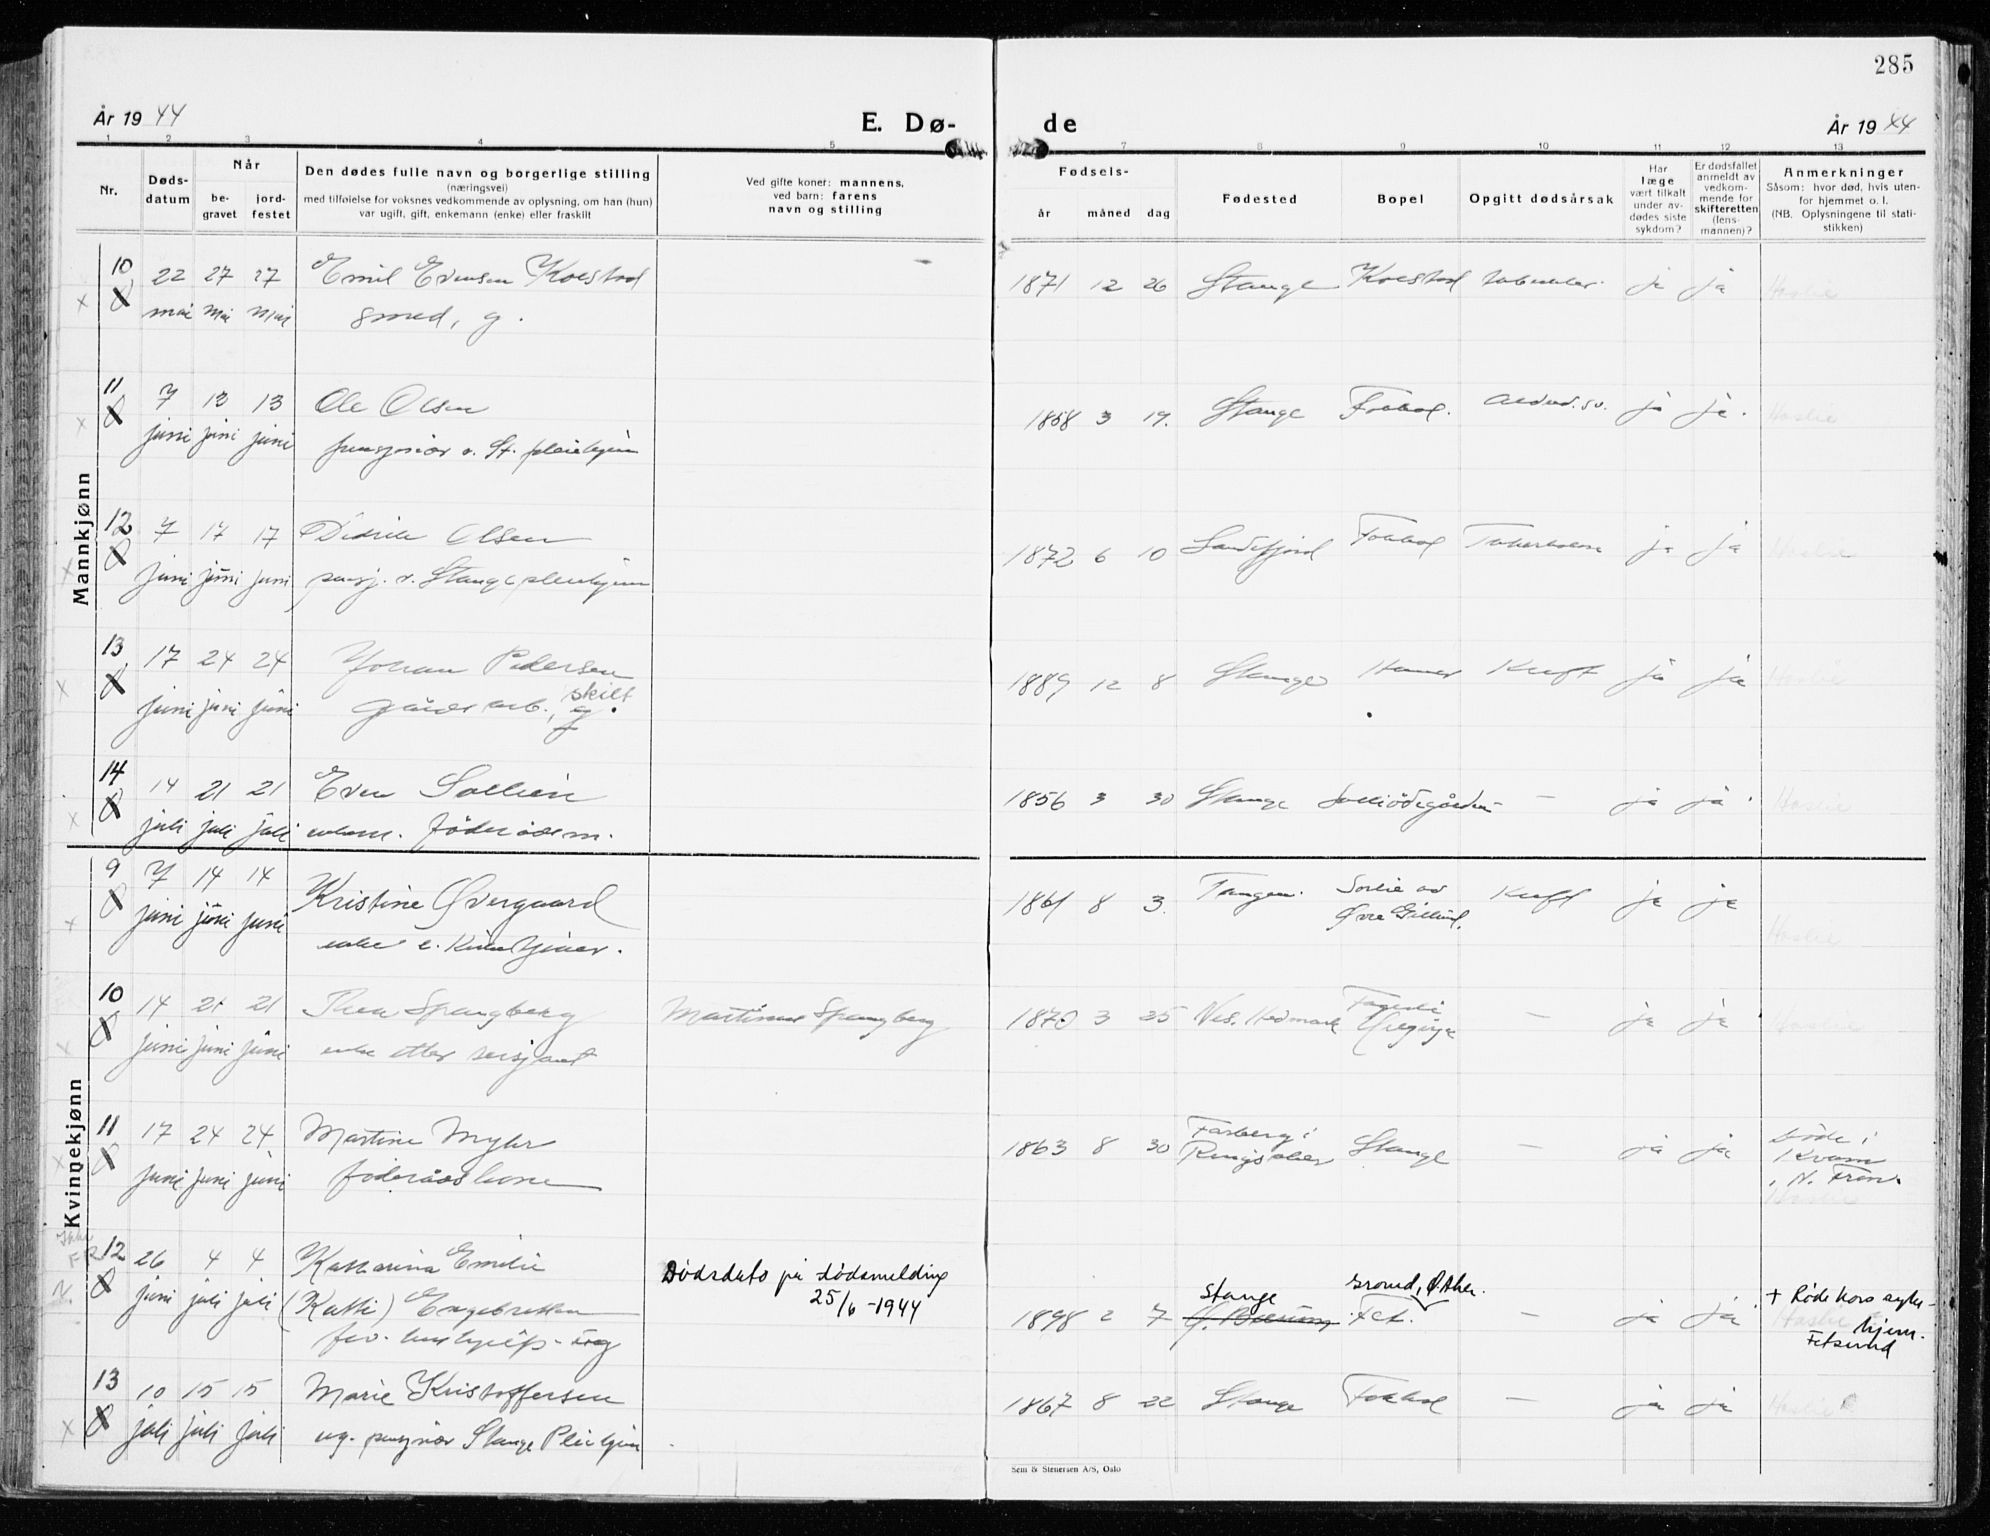 285
År 1944
E. Dø-
de
År 1944
1 2 3 4 5 7 8 9 10 11 12 13
Nr.
Døds-
datum
Når
be-
gravet
jord-
festet
Den dødes fulle navn og borgerlige stilling
(næringsvei)
med tilføielse for voksnes vedkommende av oplysning, om han (hun)
var ugift, gift, enkemann (enke) eller fraskilt
Ved gifte koner: mannens,
ved barn: farens
navn og stilling
Fødsels-
år måned dag
Fødested
Bopel
Opgitt dødsårsak
Har
læge
vært tilkalt
under av-
dødes siste
sykdom?
Er dødsfallet
anmeldt av
vedkom-
mende for
skifteretten
(lens-
mannen)?
Anmerkninger
Såsom: hvor død, hvis uten-
for hjemmet o. l.
(NB. Oplysningene til stati-
stikken)
Mannkjønn
10 22 27 27 Emil Evensen Kolstad 1871 12 26 Stange Kolstad ja ja Haslie
mai mai mai smed, g.
11 7 13 13 Ole Olsen 1858 3 19. Stange Fokhol. ja ja. Haslie
juni juni juni pensjonær v. St. pleiehjem
12 7 17 17 Didrik Olsen 1872 6 10 Sandefjord Fokhol Tuberkulose ja ja Haslie
juni juni juni pensj. v. Stange pleiehjem
13 17 24 24 Johan Pedersen 1889 12 8 Stange Hamar Kreft ja ja Haslie
juni juni juni gårdsarb., g. skilt
14 14 21 21 Even Sollien 1856 3 30 Stange Solliødegården - ja ja Haslie
juli juli juli enkem. föderådsm.
Kvinnekjønn
9 7 14 14 Kristine Øvergaard 1861 8 3. Tangen. Sorlie av Kreft ja ja
Øvre Gillund.
juni juni juni enke e. Kirketjener. Haslie
10 14 21 21 Thea Spangberg Martinus Spangberg 1870 3 25 Nes. Hedmark Fagerli - ja ja Haslie
juni juni juni enke etter sersjant
11 17 24 24 Martine Myhr 1863 8 30 Fåberg i
Ringsaker Stange - ja ja døde i
Kvam
i N. Fron.
Haslie
juni juni juni föderåds kone
Ikke
F R
N.
12 26 4 4 Katharina Emilie Dödsdato på dödsmelding
25/6-1944
juni juli juli (Katti) Engebretsen 1898 2 7 Stange Fet. - ja ja + Röde kors syke-
hjem.
Fetsund
fev. hushjelp - ug
13 10 15 15 Marie Kristoffersen 1867 8 22 Stange Fokhol - ja ja Haslie
juli juli juli ug. pensjonær Stange Pleiehjem
Sem & Stenersen A/S, Oslo